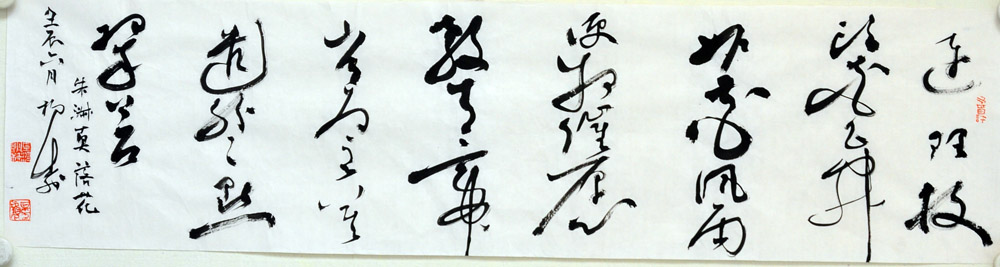 连理枝
头花正开
妒花风雨
便相催愿
教青帝
常为主莫
遣纷纷点
翠苔
朱淑真落花
壬辰六月